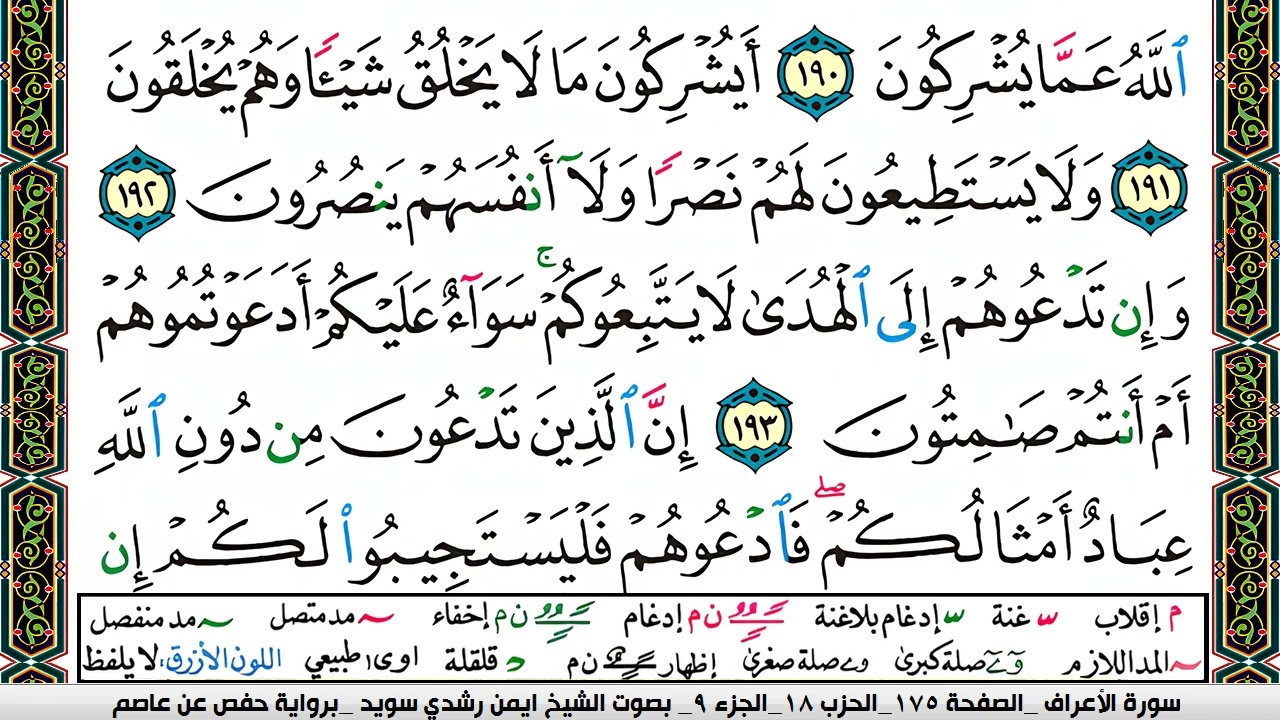 ٱللَّهُ عَمَّا يُشْرِكُونَ ١٩٠ أَيُشْرِكُونَ مَا لَا يَخْلُقُ شَيْـًٔا وَهُمْ يُخْلَقُونَ
١٩١ وَلَا يَسْتَطِيعُونَ لَهُمْ نَصْرًا وَلَآ أَنفُسَهُمْ يَنصُرُونَ ١٩٢
وَإِن تَدْعُوهُمْ إِلَى ٱلْهُدَىٰ لَا يَتَّبِعُوكُمْ ۚ سَوَآءٌ عَلَيْكُمْ أَدَعَوْتُمُوهُمْ
أَمْ أَنتُمْ صَـٰمِتُونَ ١٩٣ إِنَّ ٱلَّذِينَ تَدْعُونَ مِن دُونِ ٱللَّهِ
عِبَادٌ أَمْثَالُكُمْ ۖ فَٱدْعُوهُمْ فَلْيَسْتَجِيبُوا۟ لَكُمْ إِن
م إقلاب ّ غنة ّ إدغام بلاغنة ن م إدغام ن م إخفاء ~ مد متصل ~ مد منفصل
~ المد اللازم صلة كبرى صلة صغرى إظهار ن م د قلقلة اوى طبيعي اللون الأزرق، لا يلفظ
سورة الأعراف _الصفحة ١٧٥_الحزب ١٨_الجزء ٩_ بصوت الشيخ ايمن رشدي سويد _برواية حفص عن عاصم